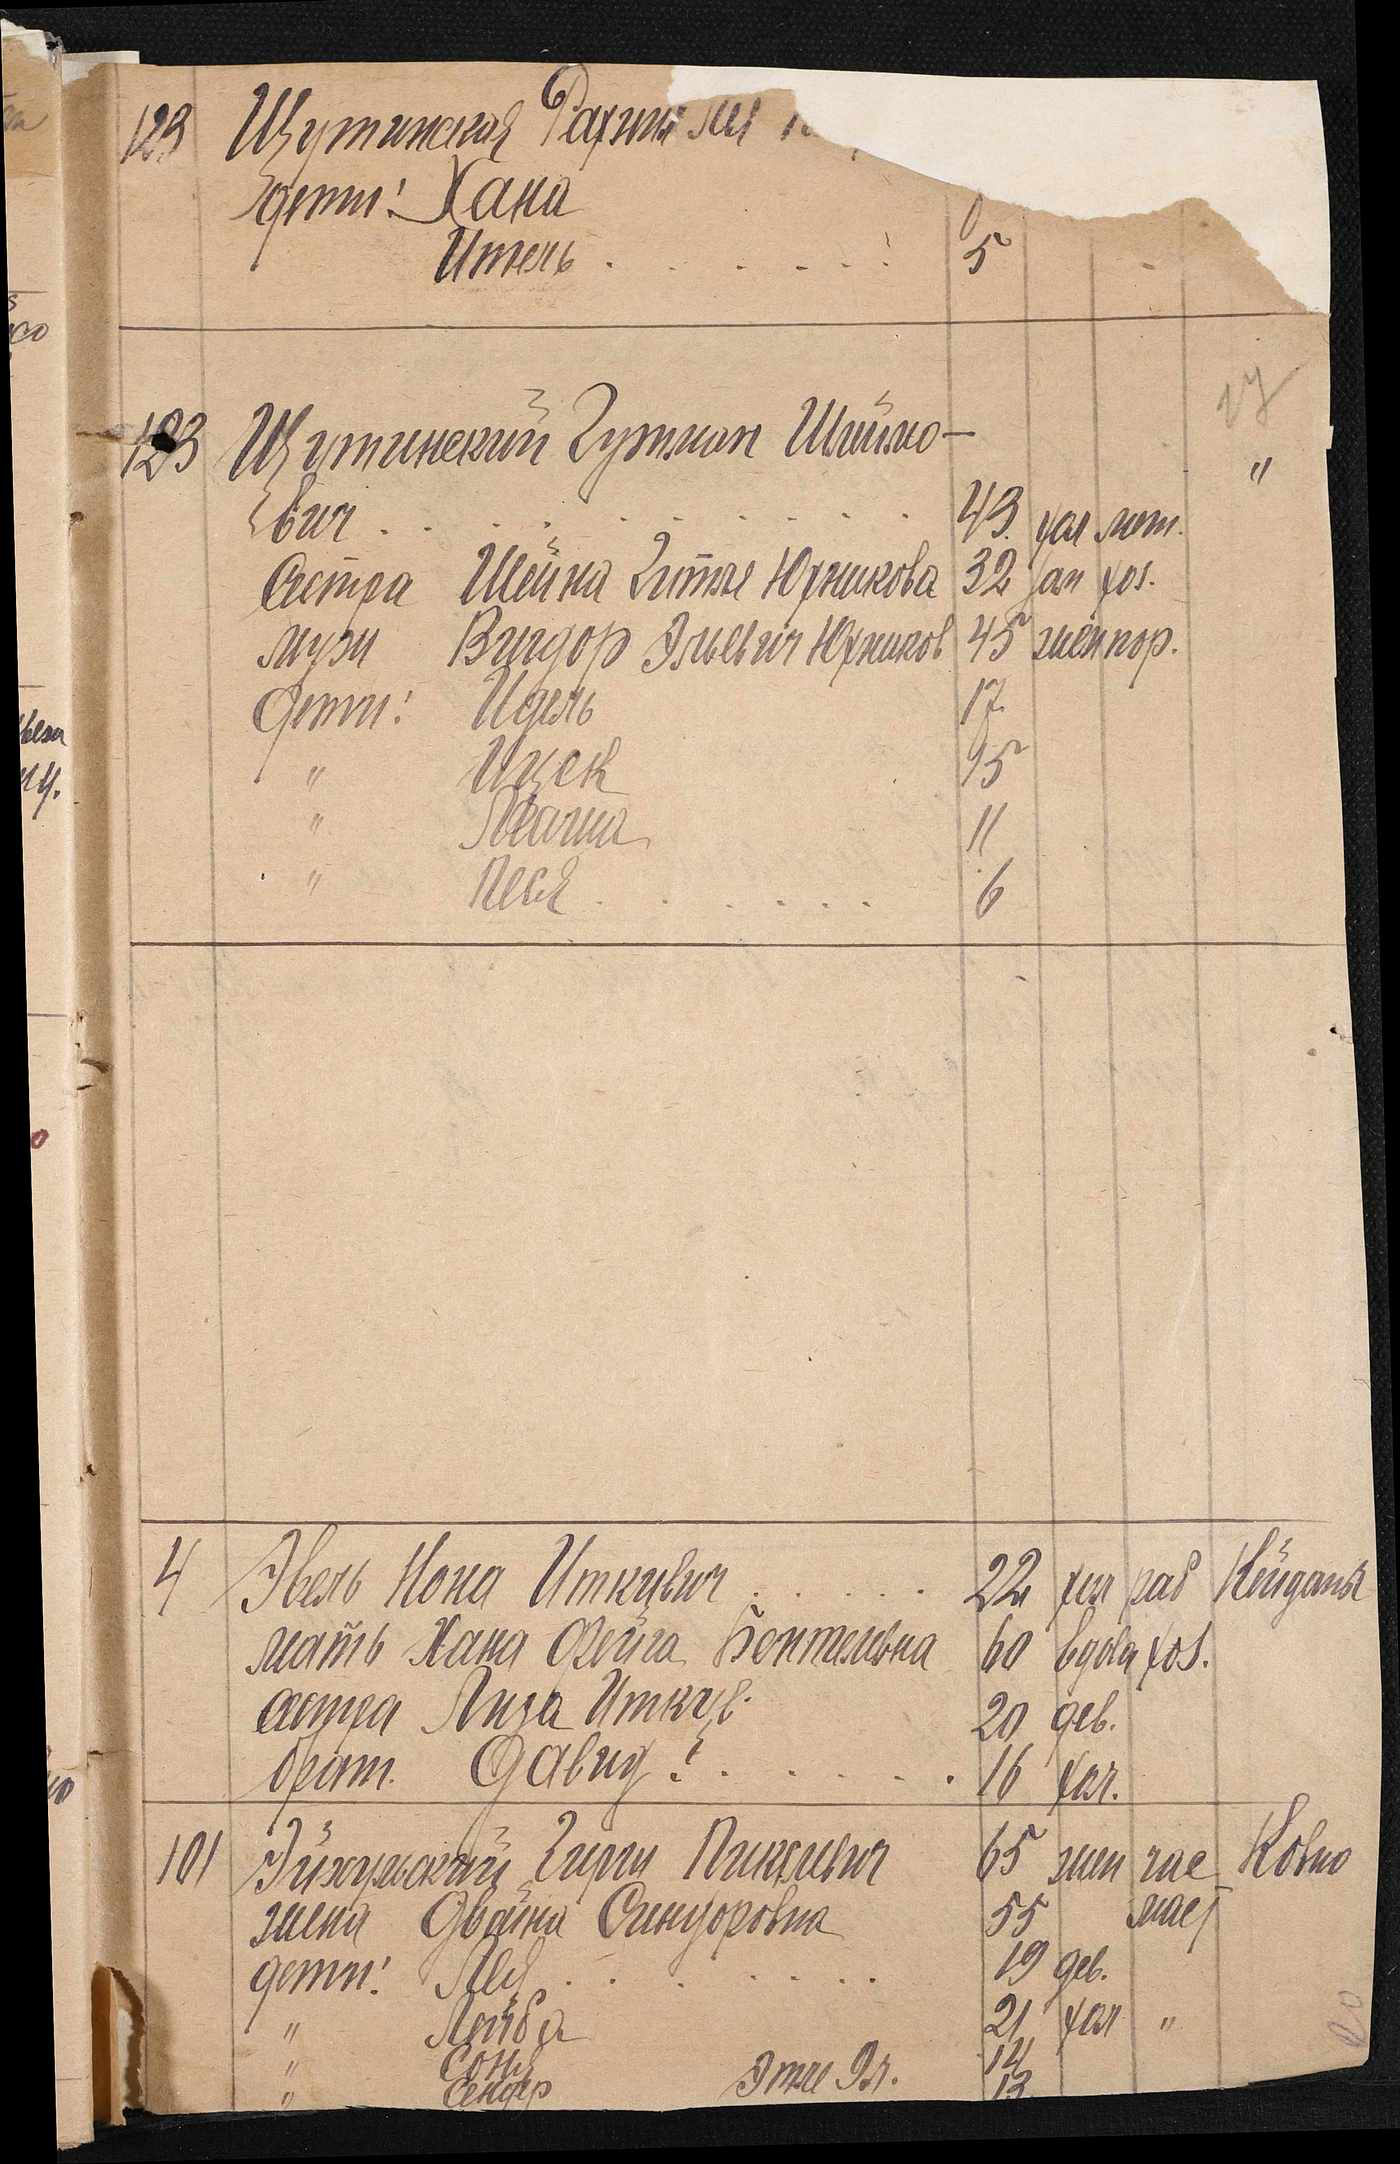 123 Щутинская Рахиль Лея
дети: Хана
Итель . . . . . . 5
27
123 Щутинский Гутман Шлиомо-
вич . . . . . . . . 43 хол мет. "
Сестра Шейна Гитле Юхникова 32 зам хоз.
муж Вигдор Эльевич Юхников 45 жен пор.
дети: Идель 17
" Ицек 15
" Махша 11
" Песя . . . . . . 6
4 Эвель Нона Иткувич . . . . . 22 хол раб Кейданы
мать Хана Фейга Бентельовна 60 вдова хоз.
сестра Лиза Иткув. 20 дев.
брат. Давид : . . . . . . 16 хол.
101 Эйхульский Гирш Пинхмевич 65 жен час Ковно
жена Двейна Сендоровна 55 маст
дети: Лея . . . . . . . 19 дев.
" Лейба 21 хол "
" Соня Этле Эл. 14
" Сендер 13